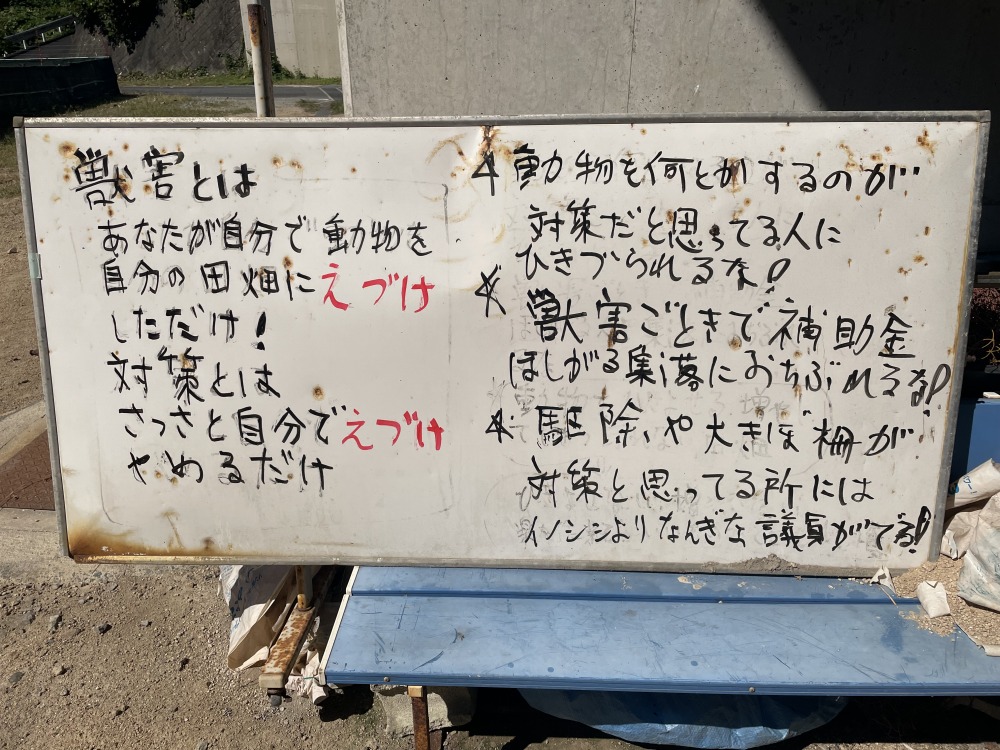 獣害とは
あなたが自分で動物を
自分の田畑にえづけ
しただけ!
対策とは
さっさと自分でえづけ
やめるだけ
☆動物を何とかするのが
対策だと思ってる人に
ひきづられるな!
☆獣害ごときで補助金
ほしがる集落におちぶれるな!
☆駆除、や大きな柵が
対策と思ってる所には
イノシシよりなんぎな議員がでる!